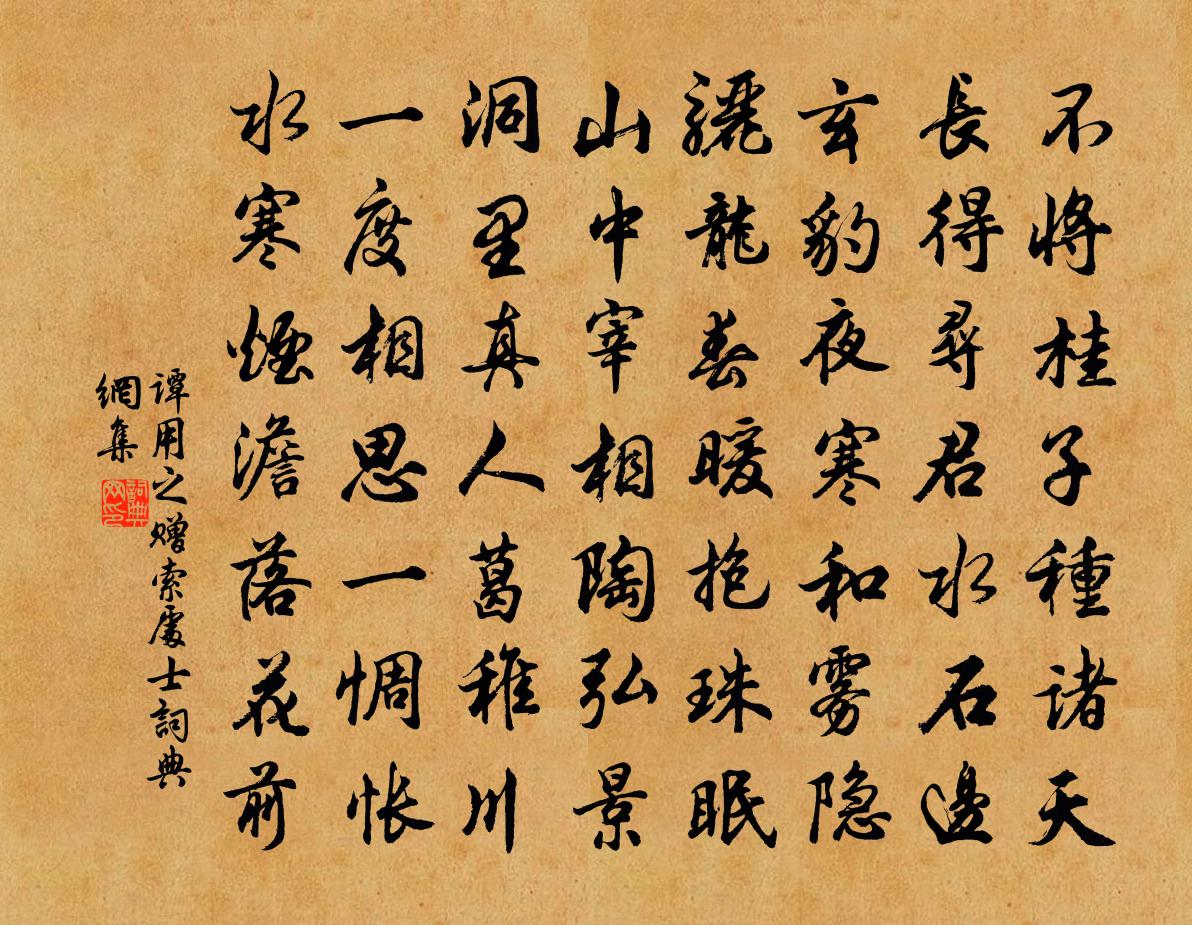 不將桂子種诸天
長得尋君水石邊
玄豹夜寒和雾隐
驪龍春暖抱珠眠
山中宰相陶弘景
洞里真人葛稚川
一度相思一惆怅
水寒煙澹落花前
谭用之赠索處士詞典
網集
詞典
网印